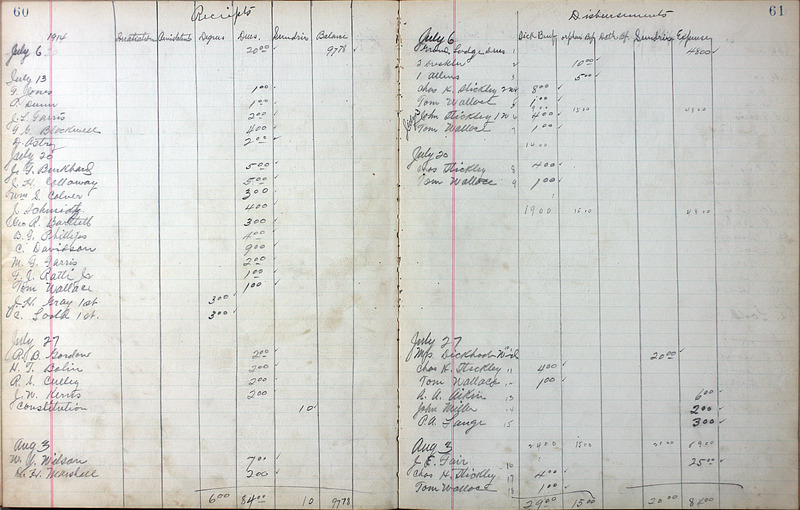 60
Receipts
1914 Initiation Degrees Dues. Sundries Balance
July 6 20 00 97 78
July 13
G. Jones 1 00
Dunn 1 00
J. L. Garris 2 00
Blackwell 4 00
2 00
July 20
J. G. Burkhard 5 00
J. H. Calloway 5 00
Wm S. Colver 3 00
J. Schmidt 4 00
Geo R. Bartlett 3 00
B. G. Phillips 4 00
C. Davidson 9 00
M. G. Garris 2 00
Ratti Jr 1 00
Tom Wallace 1 00
J. H. Gray 1st 3 00
1st. 3 00
July 27
R. B. Gordon 2 00
H. T. Bolin 2 00
R. S. 2 00
J. W. 2 00
Constitution 10
Aug 3
W. J. Wilson 7 00
D. H. Marshall 2 00
6 00 84 00 10 97 78
61
Disbursements
July 6 Sick Benf Orphans Bf Sundries Expense
Grand Lodge dues 1 48 00
2 10 00
3 5 00
Chas K. Stickley 2 wk 4 8 00
Tom Wallace 5 1 00
9 00 15 00 48 00
July 13 John Stickley 1 W 6 4 00
Tom Wallace 7 1 00
14 00
July 20
Chas Stickley 8 4 00
Tom Wallace 9 1 00
19 00 15 00 48 00
July 27
Mrs 20 00
Chas K. Stickley 11 4 00
Tom Wallace 12 1 00
A. A. Aikin 13 6 00
John Miller 14 2 00
P. A. Lange 15 3 00
Aug 3 24 00 15 00 20 00 59 00
J. E. Fair 16 25 00
Chas K. Stickley 17 4 00
Tom Wallace 18 1 00
29 00 15 00 20 00 84 00